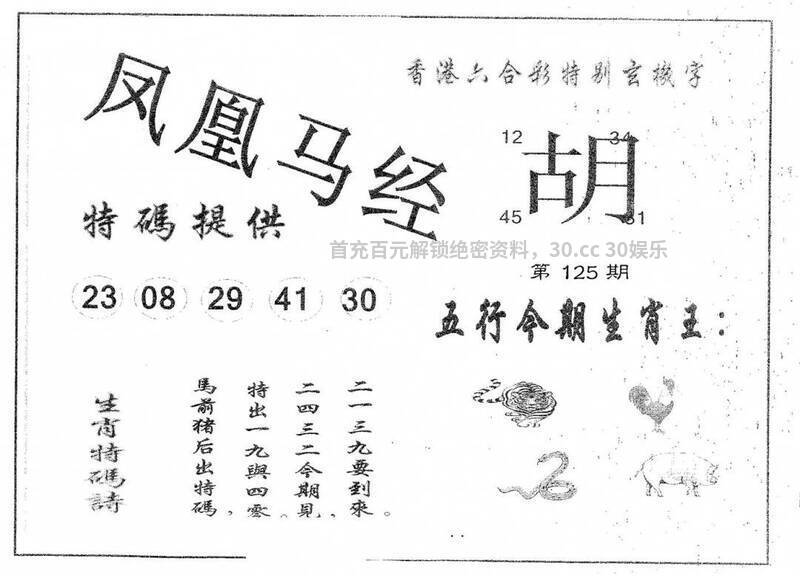 凤凰马经
香港六合彩特别玄機字
12
34
胡
45
特碼提供
首充百元解锁绝密资料，30.cc 30娱乐
第 125 期
23 08 29 41 30
五行今期生肖王：
生肖特碼詩
馬前猪后出特碼，
特出一九與四零。
二四三二今期見，
二一三九要到來。